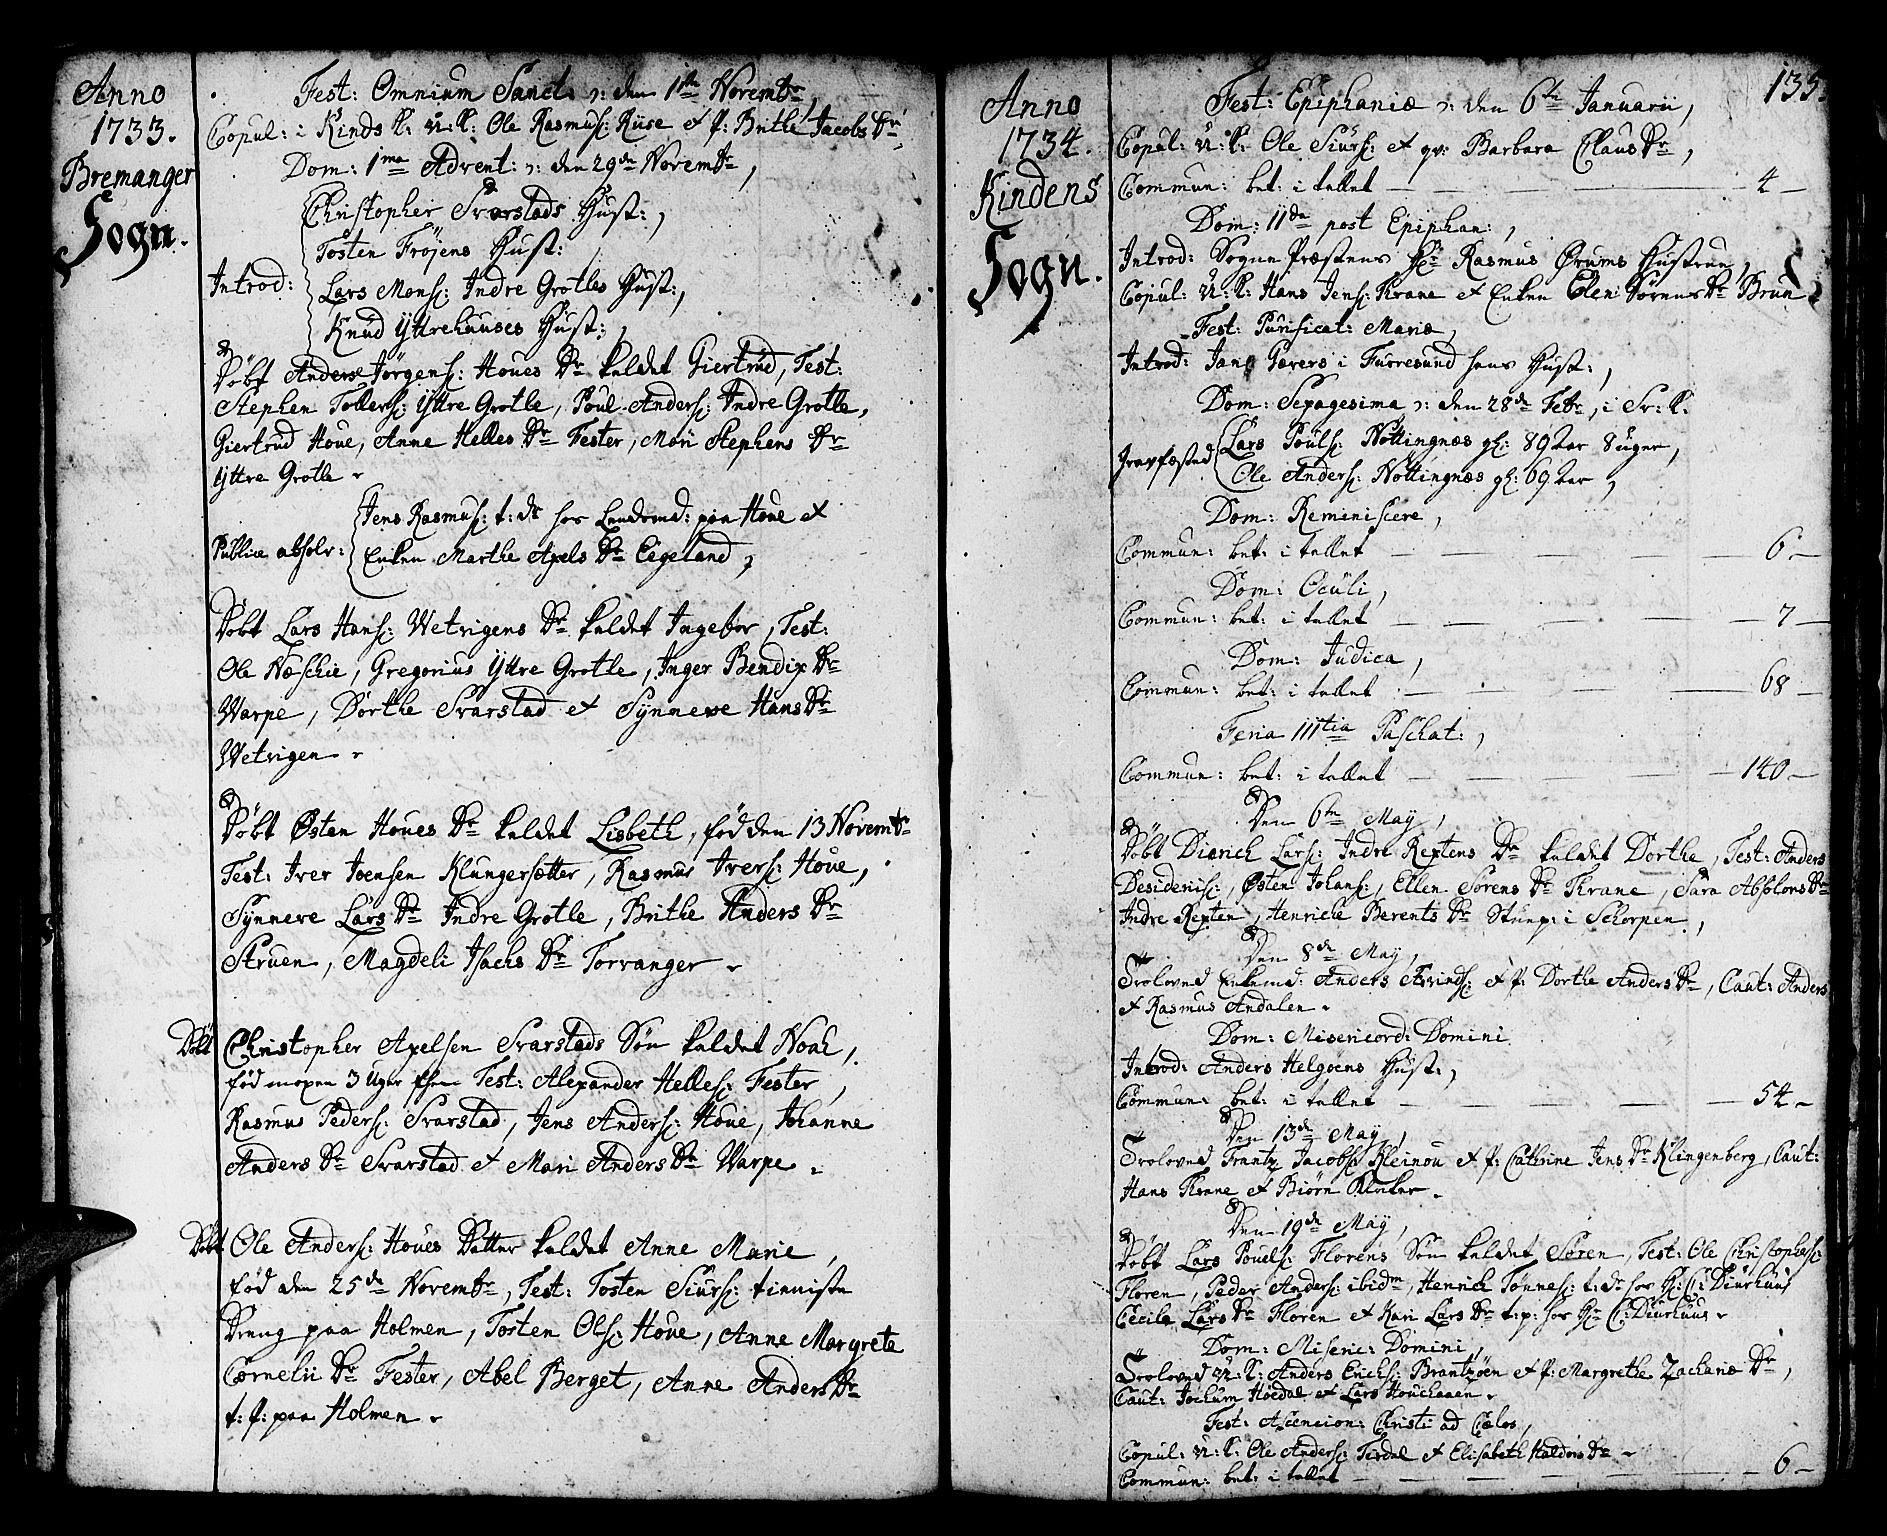 Anno
1733.
Bremanger
Sogn.
Fest: Omnium Sanct. ɔ: den 1te Novembr,
Copul: i Kinds K: U: K: Ole Rasmuss: Riise et p: Brithe Jacobs Dr,
Dom: 1ma Advent: ɔ: den 29de Novembr,
Christopher Svarstads Hust:,
Tosten Fröjens Hust:
Introd: Lars Mons: Indre Grotles Hust:,
Knud Yttrehuuses Hust:,
Döbt Anders Jörgens: Houes Dr kaldet Giertrud, Test:
Stephen Tollers: Yttre Grotle, Poul Anders: Indre Grotle,
Giertrud Houe, Anne Helles Dr Fester, Mari Stephens Dr
Yttre Grotle
Jens Rasmus: t: dr hos Lendsmd: paa Houe et
Publice absolv:
Enken Marthe Apels Dr Eigeland,
Döbt Lars Hans: Wetvigens Dr kaldet Ingebor, Test:
Ole Næschie, Gregorius Yttre Grotle, Inger Bendix Dr
Warpe, Dorthe Svarstad et Synneve Hans Dr
Wetvigen
Döbt Østen Houes Dr kaldet Lisbeth, föd den 13 Novembr
Test: Iver Joensen Klungersætter, Rasmus Ivers: Houe,
Synneve Lars Dr Indre Grotle, Brithe Anders Dr
Struen, Magdeli Isachs Dr Torvanger
Döbt Christopher Apelsen Svarstads Sön kaldet Noah,
föd 3 Uger Test: Alexander Helles: Fester,
Rasmus Peders: Svarstad, Jens Anders: Houe, Johanne
Anders Dr Svarstad et Mari Anders Dr Varpe
Döbt Ole Anders: Houes Datter kaldet Anne Marie,
föd den 25de Novembr, Test: Tosten Siurs: tieniste
Dreng paa Holmen, Torsten Ols: Houe, Anne Margrete
Cornelii Dr Fester, Abel Berget, Anne Anders Dr
t: p: paa Holmen
135.
Anno
1734.
Kindens
Sogn.
Fest: Epiphaniæ ɔ: den 6te Januarii,
Copul: U: K: Ole Siurs: et qv: Barbara Claus Dr,
Commun: bet: i tallet — 4 —
Dom: IIda post Epiphan:,
Introd: Sogne Præstens Hr Rasmus Ørums Hustrue,
Copul: U: K: Hans Jens: Krane et Enken Elen Sörens Dr Brun
Fest: Purificat: Mariæ,
Introd: Jans Garers i Furresund hans Hust:,
Dom: Sexagesima ɔ: den 28de Febr, i Sr: K:
Lars Pouls: Nottingnæs gl: 89 Aar 8 uger,
Jordfæsted
Ole Anders: Nottingnæs gl: 69 Aar,
Dom: Reminiscere,
Commun: bet: i tallet — 6 —
Dom: Oculi,
Commun: bet: i tallet — 7 —
Dom: Judica,
Commun: bet: i tallet — 68 —
Feria IIItia Paschat:,
Commun: bet: i tallet — 140 —
Den 6te May,
Döbt Dierich Lars: Indre Reptens Dr kaldet Dorthe, Test: Anders
Desideriis:, Østen Johans:, Ellen Sörens Dr Krane, Sara Absolons Dr
Indre Repten, Henriche Berents Dr Stump: i Schorpen,
Den 8de May,
Troloved Enkemd: Anders Arvinds: et p: Dorthe Anders Dr, Caut: Anders
et Rasmus Andalen
Dom: Misericord: Domini
Introd: Anders Helgöens Hust:,
Commun: bet: i tallet — 54 —
Den 13de May,
Troloved Frantz Jacobs: Kleinou et p: Cathrine Jens Dr Klingenberg, Caut:
Hans Krane et Biörn Klinker
Den 19de May,
Döbt Lars Pouels: Florens Sön kaldet Sören, Test: Ole Christophers:
Floren, Peder Anders: ibidm, Henrich Tönnes: t: dr hos Hr C: Diurhuus
Cecile Lars Dr Floren et Kari Lars Dr t: p: hos Hr C: Diurhuus
Dom: Miseric: Domini,
Troloved U: K: Anders Erichs: Brantzöen et p: Margrethe Zachariæ Dr,
Caut: Jochum Hoedal et Lars Houchaaen
Fest: Ascencion: Christi ad Cælos,
Copul: U: K: Ole Anders: Tirdal et Elisabeth Haldors Dr
Commun: bet: i tallet — 6 —